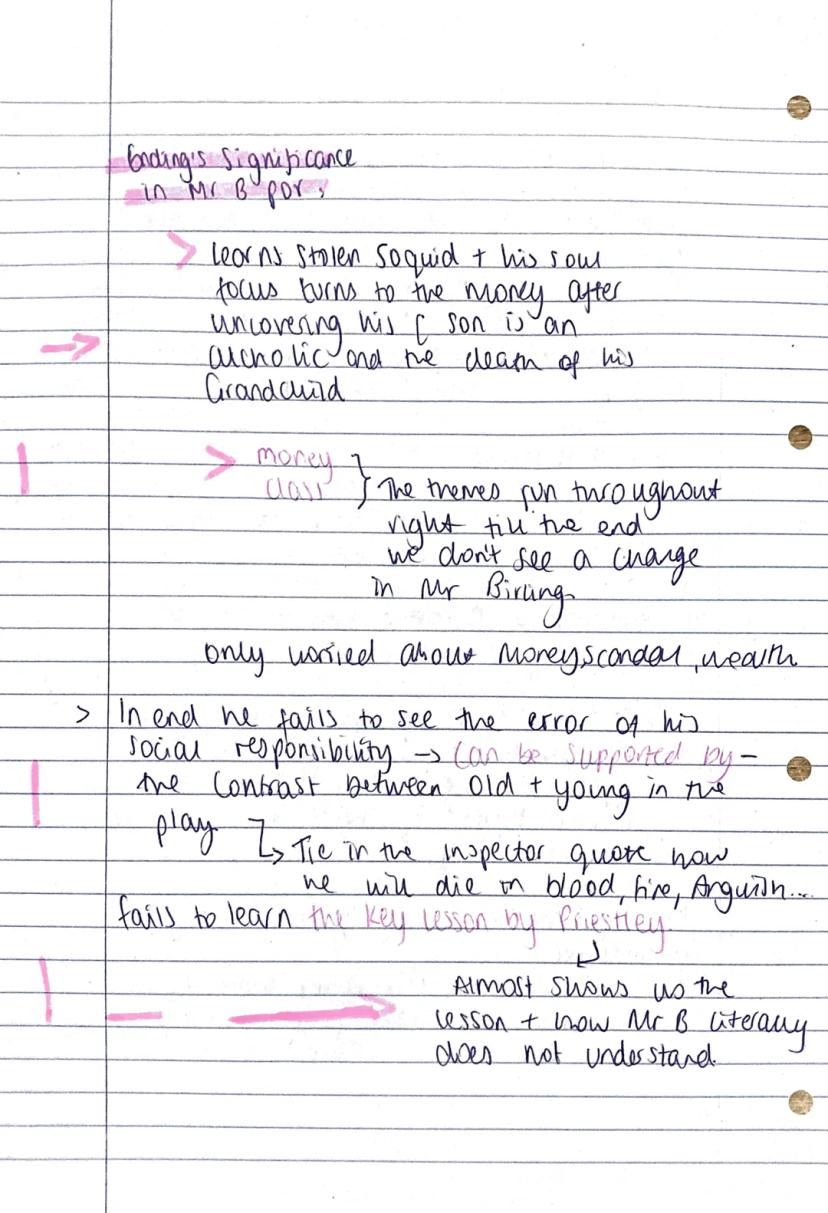 Ending's significance
in Mr B por,
> learns stolen 50quid + his soul
focus turns to the money after
uncovering his [ son is an
alcholic and the death of his
Grandchild
> money }
class
The themes run throughout
right till the end
we don't see a change
in Mr Birling.
only worried about money,scandal, wealth
> In end he fails to see the error of his
social responsibility → Can be supported by –
the contrast between old + young in the
play
↳ Tie in the inspector quote how
he will die in blood, fire, Anguish...
fails to learn the key lesson by Priestley.
Almost shows us the
lesson + how Mr B literally
does not understand.